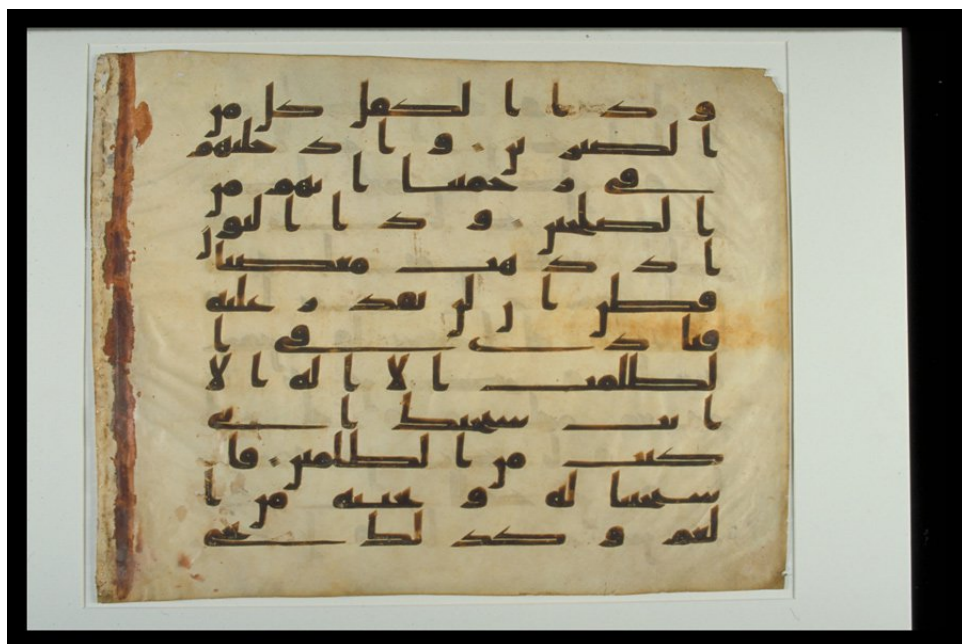 وذا الكفل كل من
الصبرين وادخلنهم
في رحمتنا انهم من
الصلحين وذا النون
اذ ذهب مغضبا
فظن ان لن نقدر عليه
فنادى في ا
لظلمت الا اله الا
انت سبحنك اني
كنت من الظلمين فا
ستجبنا له ونجينه من ا
لغم وكذلك نجي